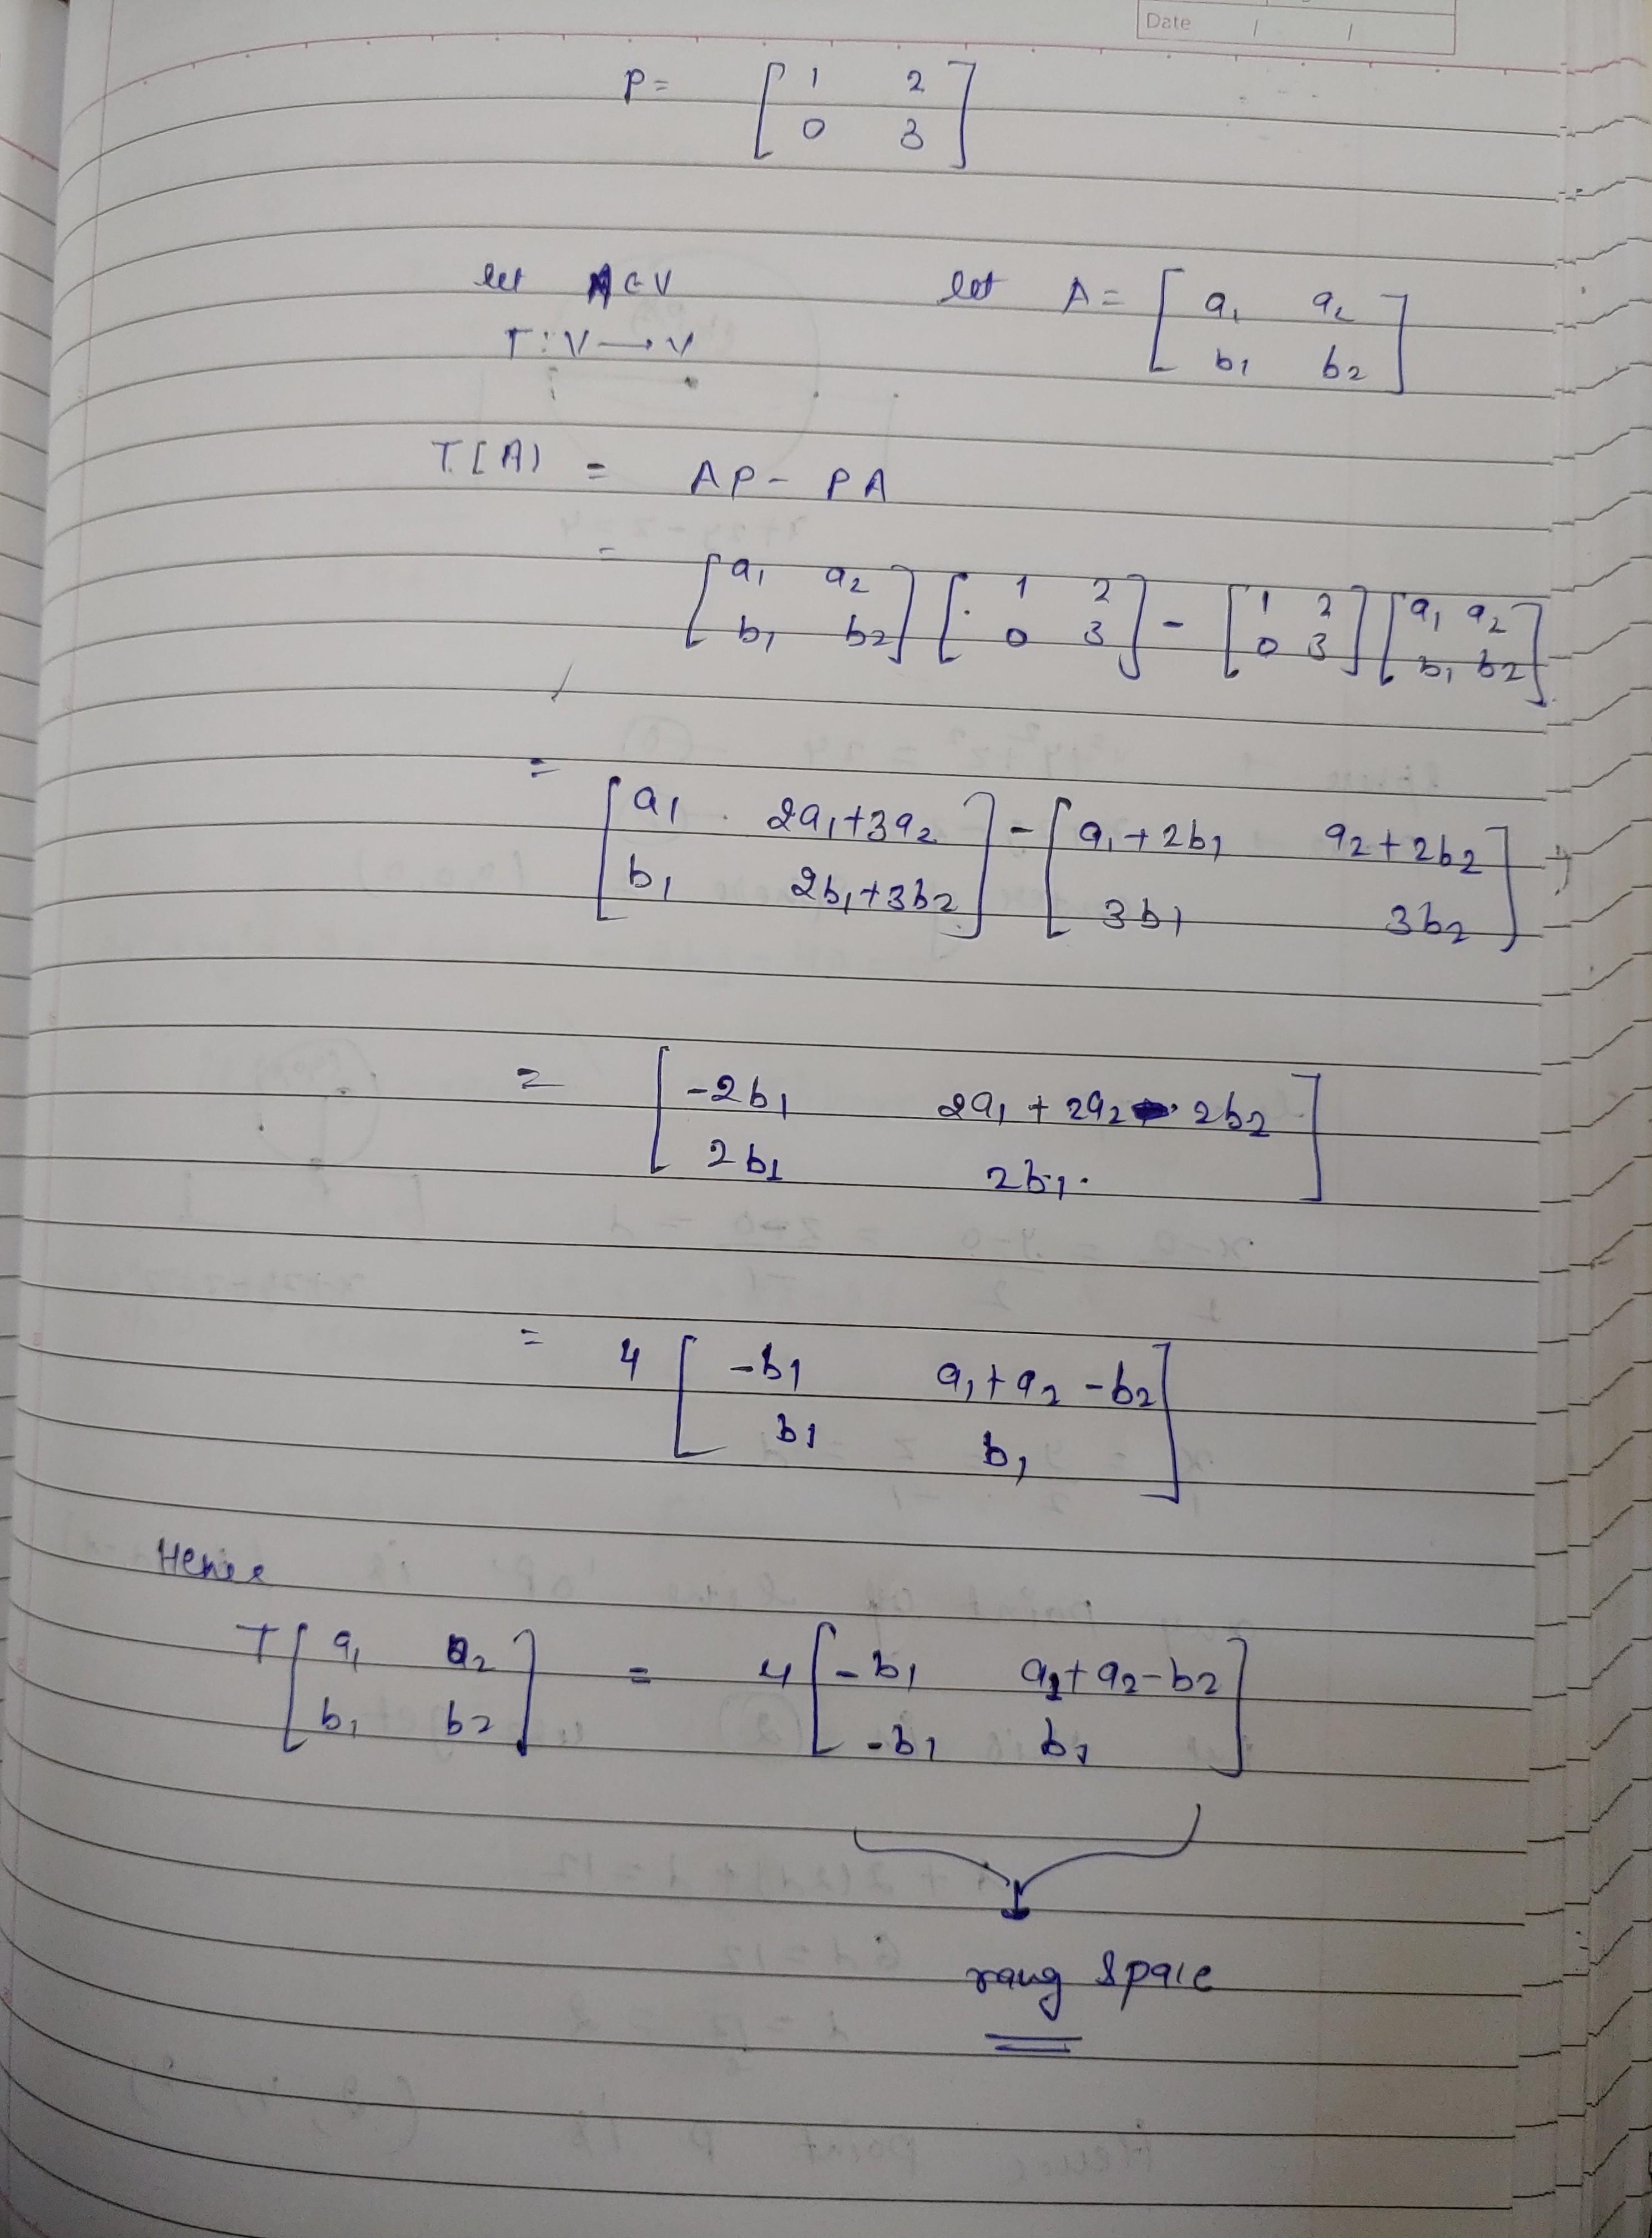 Date / /
P = [ 1 2 ; 0 3 ]
let A ∈ V let A = [ a₁ a₂ ; b₁ b₂ ]
T : V → V
T[A) = AP - PA
= [ a₁ a₂ ; b₁ b₂ ] [ 1 2 ; 0 3 ] - [ 1 2 ; 0 3 ] [ a₁ a₂ ; b₁ b₂ ]
= [ a₁ 2a₁+3a₂ ; b₁ 2b₁+3b₂ ] - [ a₁+2b₁ a₂+2b₂ ; 3b₁ 3b₂ ]
= [ -2b₁ 2a₁+2a₂ - 2b₂ ; 2b₁ 2b₁ ]
= 4 [ -b₁ a₁+a₂-b₂ ; b₁ b₁ ]
Hence
T [ a₁ a₂ ; b₁ b₂ ] = 4 [ -b₁ a₁+a₂-b₂ ; -b₁ b₁ ]
rang space